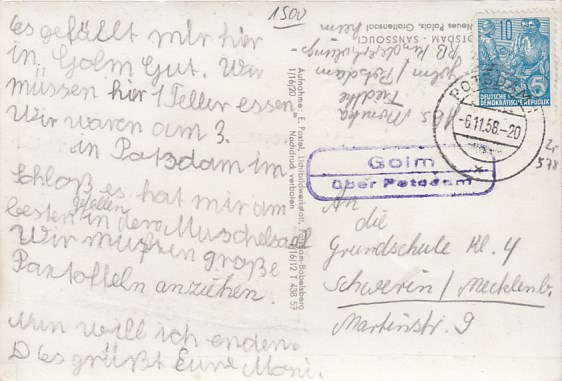 1500
Es gefällt mir hier
in Golm Gut. Wir
müssen hier 1 Teller essen
Wir waren am 3.
in Potsdam im
Schloß es hat mir am
besten gefallen in dem Muschelsaal
Wir mußten große
Pantoffeln anziehen.
Nun will ich enden.
Es grüßt Eure Moni.
POTSDAM - SANSSOUCI
Neues Palais, Grottensaal
Abs. Monika
Golm / Potsdam
Kindererholungs
heim
Aufnahme: E. Postel, Lichtbildwerkstatt, Potsdam-Babelsberg
1/16/20 Nachdruck verboten
I/16/12 T 438 57
10
5
DEUTSCHE
DEMOKRATISCHE REPUBLIK
POTSDAM
-6.11.58.-20
Golm
über Potsdam
An
die
Grundschule Kl. 4
Schwerin / Mecklenb.
Martinstr. 9